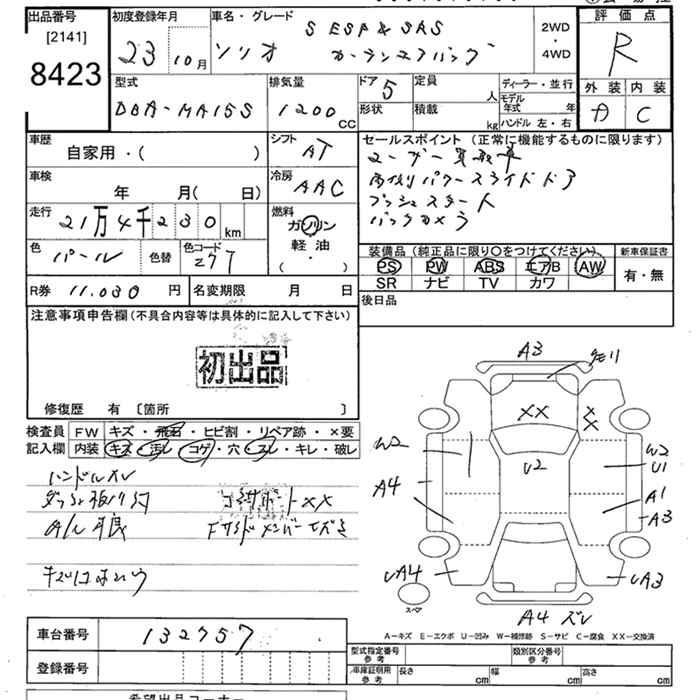 出品番号 初度登録年月 車名・グレード 評価点
[2141] S ESP & SRS 2WD
8423 23 10月 ソリオ カーテンエアバッグ ・ R
4WD
型式 排気量 ドア 5 定員 人 ディーラー・並行 外装 内装
DBA-MA15S 1200 CC 形状 積載 kg モデル年式 年 A C
ハンドル 左・右
車歴 シフト セールスポイント (正常に機能するものに限ります)
自家用・( ) AT ユーザー買取車
車検 冷房 両側パワースライドドア
年 月( 日) AAC プッシュスタート
走行 21万4千230km 燃料 バックカメラ
ガソリン
色 パール 色替 色コード Z7T 軽油 装備品 (純正品に限り○をつけてください) 新車保証書
( ・ ) PS PW ABS エアB AW 有・無
R券 11.030 円 名変期限 月 日 SR ナビ TV カワ
注意事項申告欄(不具合内容等は具体的に記入して下さい) 後日品
初出品
修復歴 有 〔箇所 〕
検査員 FW キズ・飛石・ヒビ割・リペア跡・×要
記入欄 内装 キズ・汚レ・コゲ・穴・スレ・キレ・破レ
ハンドルスレ
コアサポートXX
A/C不良
A3
XX
XX
W2 U2 W2
U1
A4 A1
A3
UA4 UA3
スペア
A4 ズレ
車台番号 132757
A-キズ E-エクボ U-凹み W-補修跡 S-サビ C-腐食 XX-交換済
登録番号 型式指定番号 参考 類別区分番号 参考
車庫証明用 参考 長さ cm 幅 cm 高さ cm
希望出品コーナー